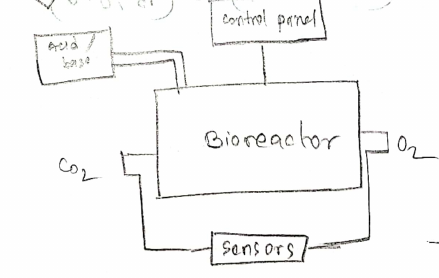 control panel
acid /
base
Bioreactor
CO2
O2
sensors